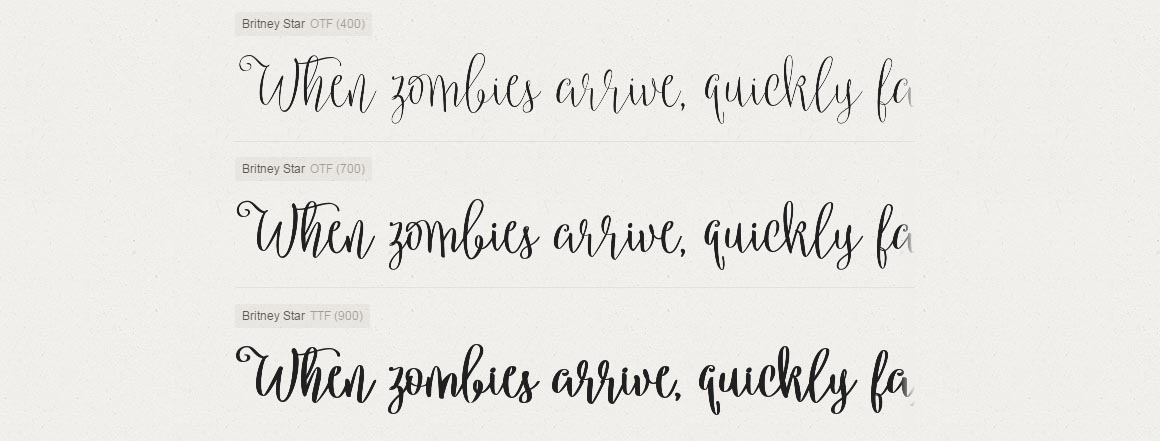 Britney Star OTF (400)
When zombies arrive, quickly fa
Britney Star OTF (700)
When zombies arrive, quickly fa
Britney Star TTF (900)
When zombies arrive, quickly fa